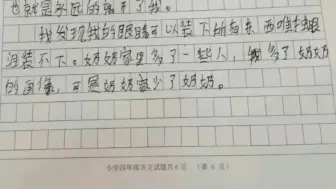 也就是永远的离开了我。
我发现我的眼睛可以装下所有东西唯独眼
泪装不下。奶奶家里多了一些人，我多了奶奶
的画像，可是奶奶家少了奶奶。
小学四年级语文试题共6页 （第 6 页）